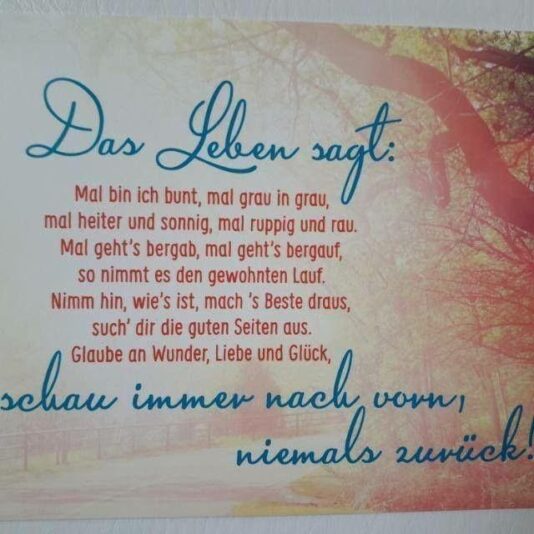 Das Leben sagt:
Mal bin ich bunt, mal grau in grau,
mal heiter und sonnig, mal ruppig und rau.
Mal geht's bergab, mal geht's bergauf,
so nimmt es den gewohnten Lauf.
Nimm hin, wie's ist, mach 's Beste draus,
such' dir die guten Seiten aus.
Glaube an Wunder, Liebe und Glück,
schau immer nach vorn,
niemals zurück!